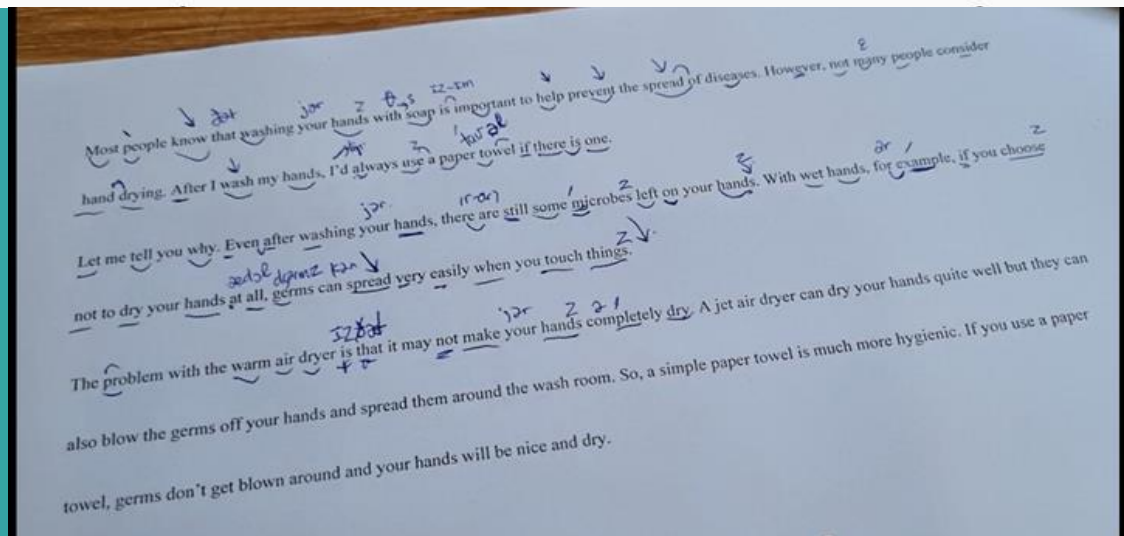 Most people know that washing your hands with soap is important to help prevent the spread of diseases. However, not many people consider
hand drying. After I wash my hands, I'd always use a paper towel if there is one.
Let me tell you why. Even after washing your hands, there are still some microbes left on your hands. With wet hands, for example, if you choose
not to dry your hands at all, germs can spread very easily when you touch things.
The problem with the warm air dryer is that it may not make your hands completely dry. A jet air dryer can dry your hands quite well but they can
also blow the germs off your hands and spread them around the wash room. So, a simple paper towel is much more hygienic. If you use a paper
towel, germs don't get blown around and your hands will be nice and dry.